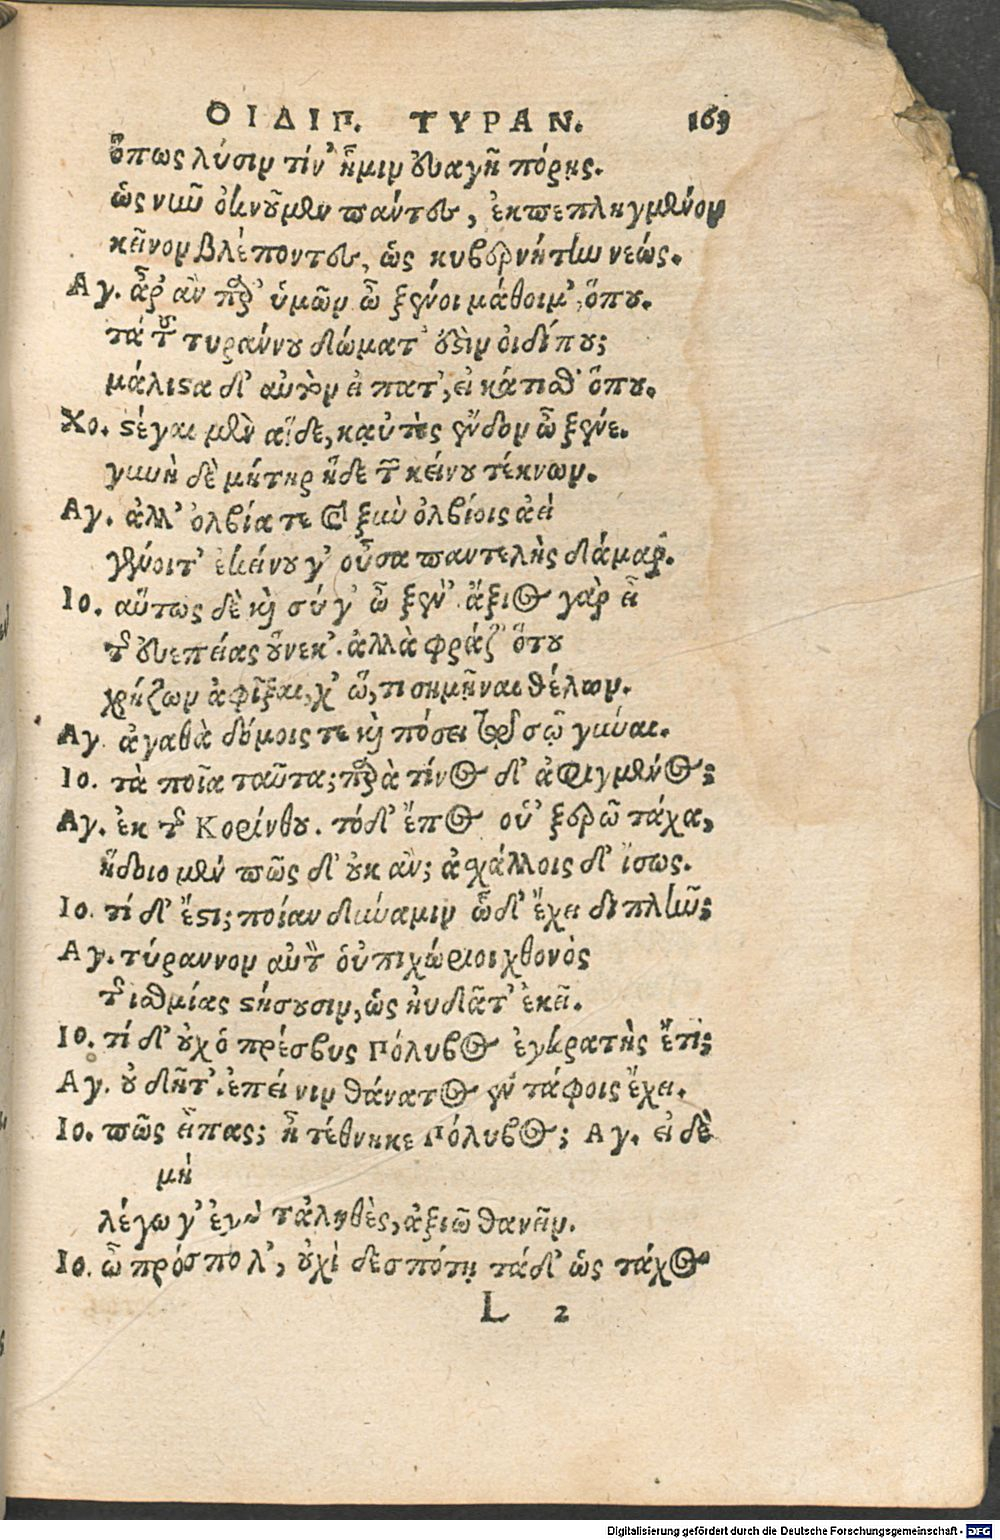 ΟΙΔΙΠ. ΤΥΡΑΝ. 169
ὅπως λύσιν τίν' ἥμιν εὐαγῆ πόρῃς.
ὡς νῦν ὀκνοῦμεν πάντες, ἐκπεπληγμένον
κεῖνον βλέποντες, ὡς κυβερνήτην νεώς.
Αγ. ἆρ' ἂν παρ' ὑμῶν ὦ ξένοι μάθοιμ', ὅπου.
τὰ τοῦ τυράννου δώματ' ἐστὶν οἰδίπου;
μάλιστα δ' αὐτὸν εἴπατ', εἰ κάτισθ' ὅπου.
Χο. στέγαι μὲν αἵδε, καὐτὸς ἔνδον ὦ ξένε.
γυνὴ δὲ μήτηρ ἥδε τῶν κείνου τέκνων.
Αγ. ἀλλ' ὀλβία τε καὶ ξὺν ὀλβίοις ἀεὶ
γένοιτ' ἐκείνου γ' οὖσα παντελὴς δάμαρ.
Ιο. αὕτως δὲ καὶ σύ γ' ὦ ξέν'. ἄξιος γὰρ εἶ
τῆς εὐεπείας οὕνεκ'. ἀλλὰ φράζ' ὅτου
χρῄζων ἀφῖξαι, χ' ὥ, τι σημῆναι θέλων.
Αγ ἀγαθὰ δόμοις τε καὶ πόσει τῷ σῷ γύναι.
Ιο. τὰ ποῖα ταῦτα; παρὰ τίνος δ' ἀφιγμένος;
Αγ. ἐκ τῆς Κορίνθου. τόδ' ἔπος οὑξερῶ τάχα,
ἥδοιο μέν πῶς δ' οὐκ ἄν; ἀσχάλλοις δ' ἴσως.
Ιο. τί δ' ἔστι; ποίαν δύναμιν ὧδ' ἔχει διπλῆν;
Αγ. τύραννον αὐτὸν οὑπιχώριοι χθονὸς
τῆς ἰσθμίας στήσουσιν, ὡς ηὐδᾶτ' ἐκεῖ.
Ιο. τί δ' οὐχ ὁ πρέσβυς Πόλυβος ἐγκρατὴς ἔτι;
Αγ. οὐ δῆτ'. ἐπεί νιν θάνατος ἐν τάφοις ἔχει.
Ιο. πῶς εἶπας; ἦ τέθνηκε Πόλυβος; Αγ. εἰ δὲ
μὴ
λέγω γ' ἐγὼ τἀληθὲς, ἀξιῶ θανεῖν.
Ιο. ὦ πρόσπολ', οὐχὶ δεσπότῃ τάδ' ὡς τάχος
L 2
Digitalisierung gefördert durch die Deutsche Forschungsgemeinschaft - DFG